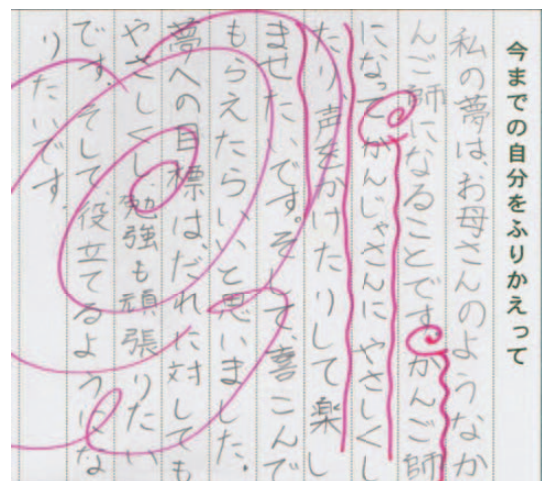 今までの自分をふりかえって
私の夢は、お母さんのようなか
んご師になることです。かんご師
になってかんじゃさんにやさしくし
たり、声をかけたりして楽し
ませたいです。そして、喜こんで
もらえたらいいと思いました。
夢への目標は、だれに対しても
やさしくし、勉強も頑張りたい
です。そして、役立てるようにな
りたいです。